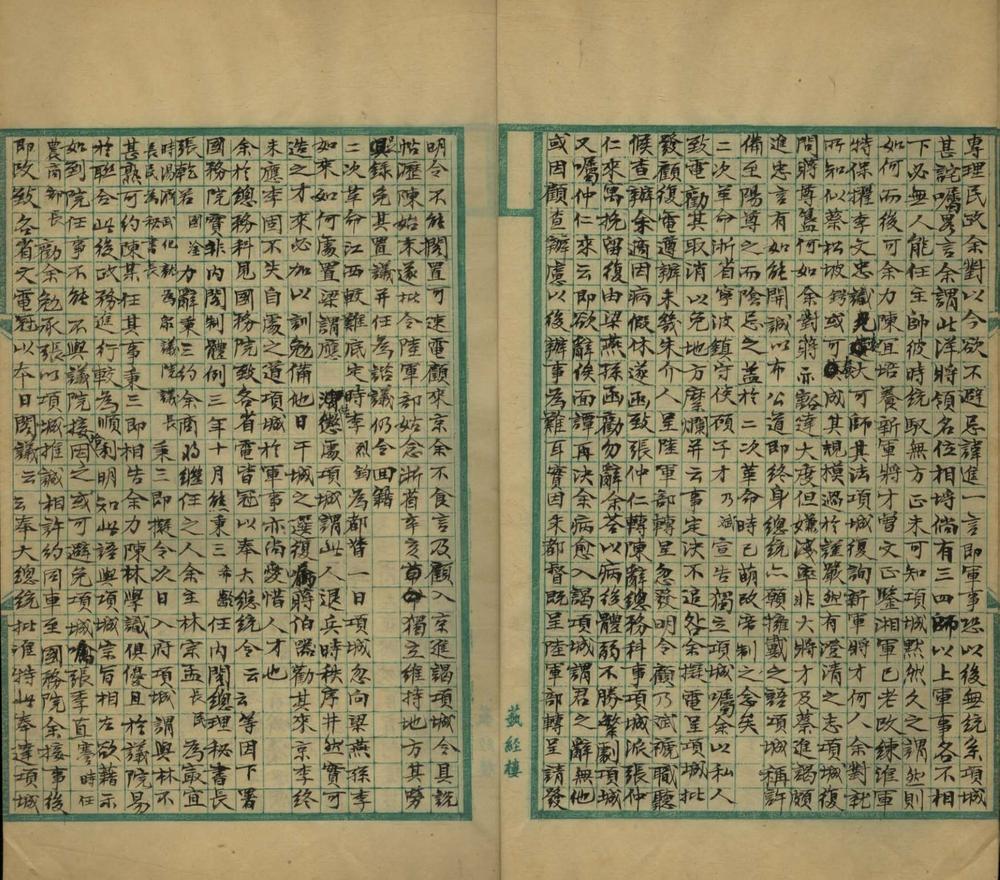 專理民政余對以今欲不避忌諱進一言即軍事恐以後無統系項城
甚詫囑畧言余謂此洋將領名位相埒倘有三四師以上軍事各不相
下必無人能任主帥彼時統馭無方正未可知項城默然久之謂然則
如何而後可余力陳宜培養新軍將才曾文正鑒湘軍已老改練淮軍
特保擢李文忠識大可師其法項城復詢新軍將才何人余對就
所知似蔡松坡鍔或可成其規模過於謹嚴然有澄清之志項城復
問蔣尊簋何如余對蔣亦豁達大度但嫌濶非大將才及蔡進謁頗
進忠言有如能開誠以布公道即終身總統亦願擁戴之語項城稱許
備至陽尊之而陰忌之蓋於二次革命時已萌改帝制之念矣
二次革命浙省寧波鎮守使顧子才乃斌宣告獨立項城囑余以私人
致電勸其取消以免地方糜爛并云事定決不追咎余撰電呈項城批
發顧復電遵辦未幾朱介人呈陸軍部轉呈忽發明令顧乃斌褫職聽
候查辦余適因病假休遂函致張仲仁轉陳辭總務科事項城派張仲
仁來寓挽留復由梁燕孫函勸勿辭余荅以病後體弱不勝繁劇項城
又囑仲仁來云即欲辭俟面譚再決余病愈入謁項城謂君之辭無他
或因顧查辦慮以後辦事為難耳實因朱都督既呈陸軍部轉呈請發
明令不能擱置可速電顧來京余不食言及顧入京進謁項城令具說
帖瀝陳始末遂批令陸軍部姑念浙省辛亥獨立維持地方其勞
錄免其置議并任為諮議仍令回籍
二次革命江西較難底定時李烈鈞為都督一日項城忽向梁燕孫李
如來如何處置梁謂應懲處項城謂此人退兵時秩序井然實可
造之才來必加以訓勉備他日干城之選復囑蔣伯器勸其來京李終
未應李固不失自處之道項城於軍事亦尚愛惜人才也
余於總務科見國務院致各省電皆冠以奉大總統令云云等因下署
國務院實非內閣制體例三年十月熊秉三希齡任內閣總理秘書長
張乾若國淦力辭秉三約余商將繼任之人余主林宗孟長民為最宜
時湯濟武化龍為眾議院議長長民為秘書長秉三即擬令次日入府項城謂與林不
甚熟可約陳某任其事秉三即相告余力陳林學識俱優且於議院易
於聯合此後政務進行較為順利明知此語與項城宗旨相左欲藉示
如到院任事不能不與議院接因之或可避免項城囑張季直謇時任
農商部長勸余勉承張以項城推誠相許約同車至國務院余接事後
即改致各省文電冠以本日閣議云云奉大總統批准特此奉達項城
蓺經樓